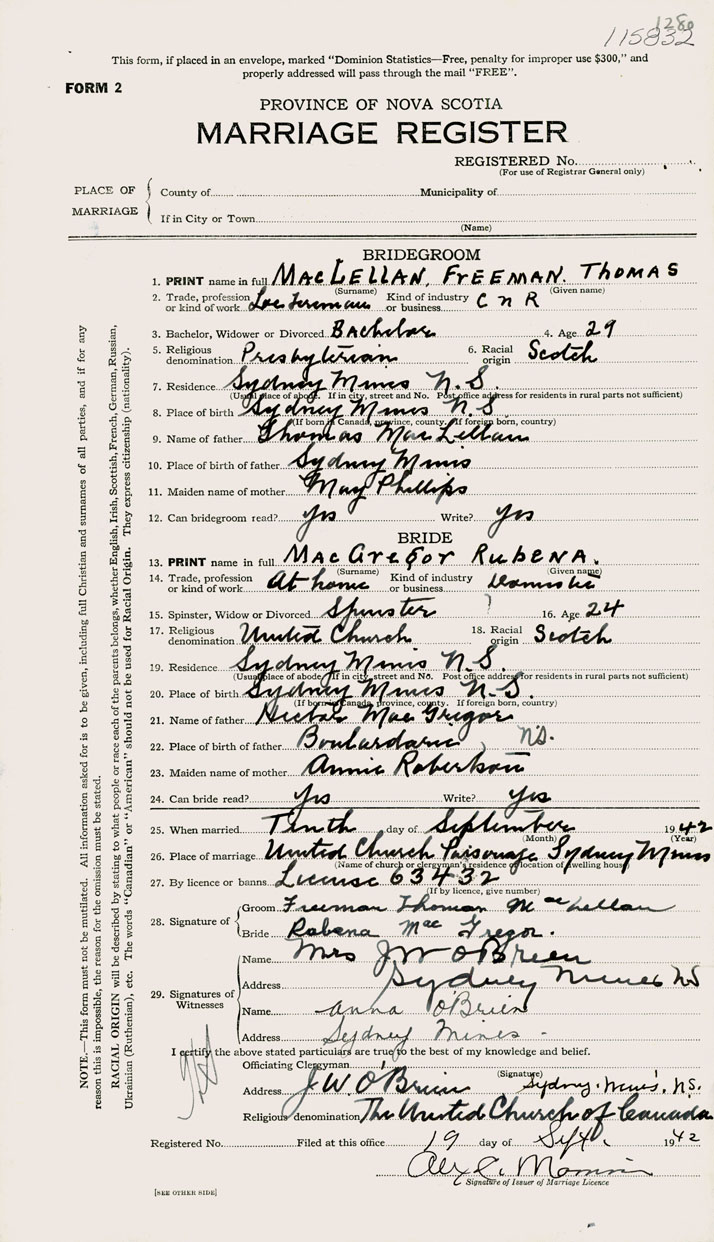 1280
115832
This form, if placed in an envelope, marked "Dominion Statistics—Free, penalty for improper use $300," and
properly addressed will pass through the mail "FREE".
FORM 2
PROVINCE OF NOVA SCOTIA
MARRIAGE REGISTER
REGISTERED No.
(For use of Registrar General only)
PLACE OF MARRIAGE
County of Municipality of
If in City or Town
(Name)
BRIDEGROOM
1. PRINT name in full MACLELLAN, FREEMAN. THOMAS
(Surname) (Given name)
2. Trade, profession or kind of work Loc fireman Kind of industry or business C N R
3. Bachelor, Widower or Divorced Bachelor 4. Age 29
5. Religious denomination Presbyterian 6. Racial origin Scotch
7. Residence Sydney Mines N.S.
(Usual place of abode. If in city, street and No. Post office address for residents in rural parts not sufficient)
8. Place of birth Sydney Mines N.S.
(If born in Canada, province, county. If foreign born, country)
9. Name of father Thomas MacLellan
10. Place of birth of father Sydney Mines
11. Maiden name of mother May Phillips
12. Can bridegroom read? yes Write? yes
BRIDE
13. PRINT name in full MACGREGOR RUBENA.
(Surname) (Given name)
14. Trade, profession or kind of work At home Kind of industry or business Domestic
?
15. Spinster, Widow or Divorced Spinster 16. Age 24
17. Religious denomination United Church 18. Racial origin Scotch
19. Residence Sydney Mines N.S.
(Usual place of abode. If in city, street and No. Post office address for residents in rural parts not sufficient)
20. Place of birth Sydney Mines N.S.
(If born in Canada, province, county. If foreign born, country)
21. Name of father Hector MacGregor
22. Place of birth of father Boulardarie, N.S.
23. Maiden name of mother Annie Robertson
24. Can bride read? yes Write? yes
25. When married Tenth day of September 1942
(Month) (Year)
26. Place of marriage United Church Parsonage Sydney Mines
(Name of church or clergyman's residence or location of dwelling house)
27. By licence or banns License 63432
(If by licence, give number)
28. Signature of
Groom Freeman Thomas MacLellan
Bride Rubena MacGregor.
29. Signatures of Witnesses
Name Mrs J W O'Brien
Address Sydney Mines NS
Name Anna O'Brien
Address Sydney Mines.
I certify the above stated particulars are true to the best of my knowledge and belief.
Officiating Clergyman J.W. O'Brien
(Signature)
Address Sydney Mines, N.S.
Religious denomination The United Church of Canada
Registered No. Filed at this office 19 day of Sept. 1942
Signature of Issuer of Marriage Licence
[SEE OTHER SIDE]
NOTE.—This form must not be mutilated. All information asked for is to be given, including full Christian and surnames of all parties, and if for any
reason this is impossible, the reason for the omission must be stated.
RACIAL ORIGIN will be described by stating to what people or race each of the parents belongs, whether English, Irish, Scottish, French, German, Russian,
Ukrainian (Ruthenian), etc. The words "Canadian" or "American" should not be used for Racial Origin. They express citizenship (nationality).